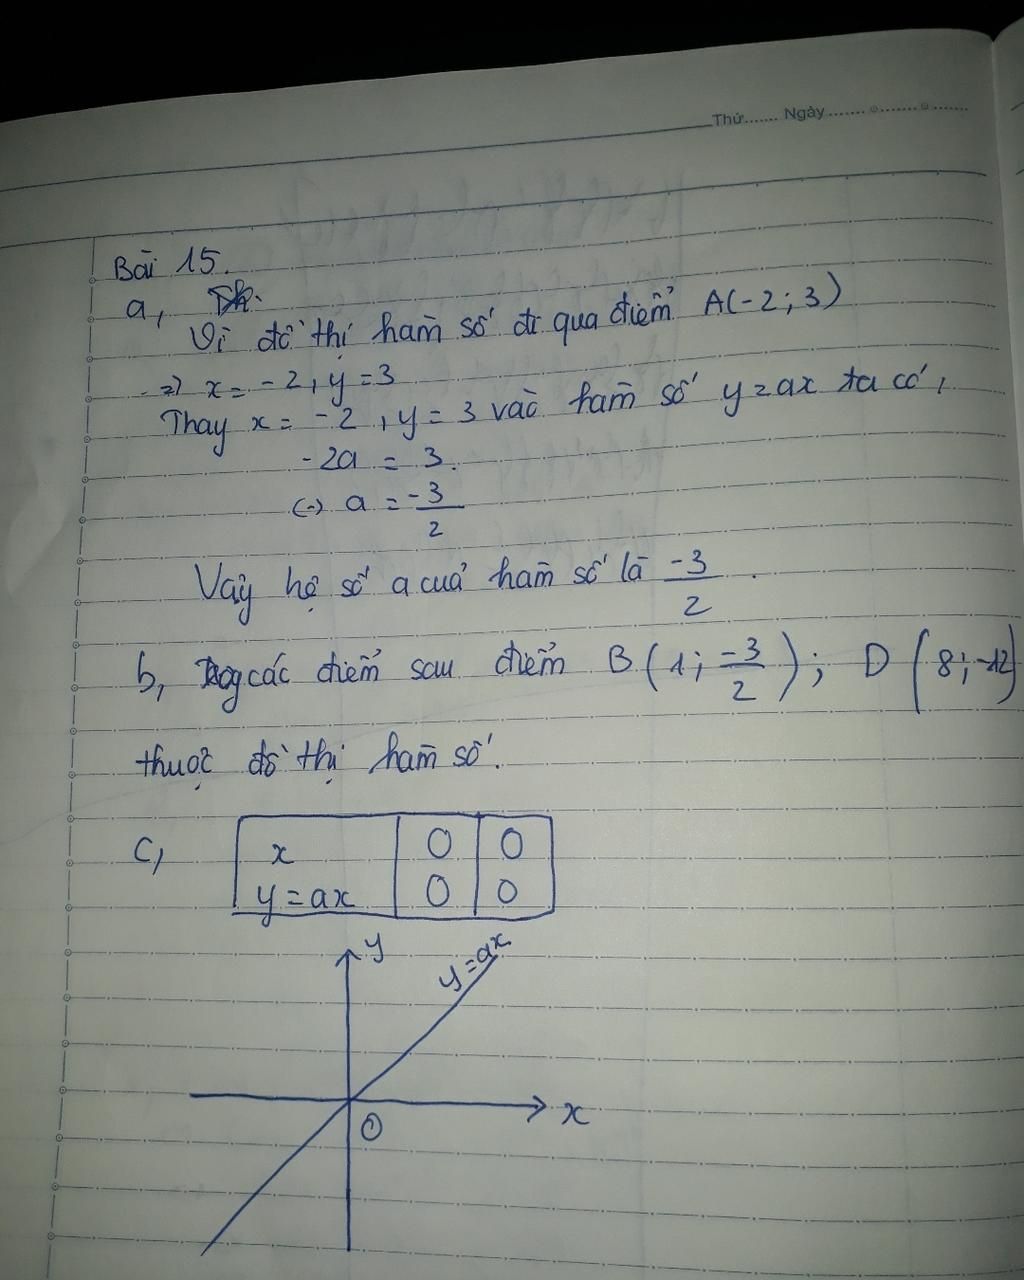 Thứ....... Ngày.......
Bài 15.
a,
Vì đồ thị hàm số đi qua điểm A(-2; 3)
=> x = -2, y = 3
Thay x = -2, y = 3 vào hàm số y = ax ta có,
-2a = 3.
(-) a = -3/2
Vậy hệ số a của hàm số là -3/2.
b, các điểm sau điểm B(1; -3/2); D(8; -12)
thuộc đồ thị hàm số.
c,
x 0 0
y = ax 0 0
y
y = ax
x
O